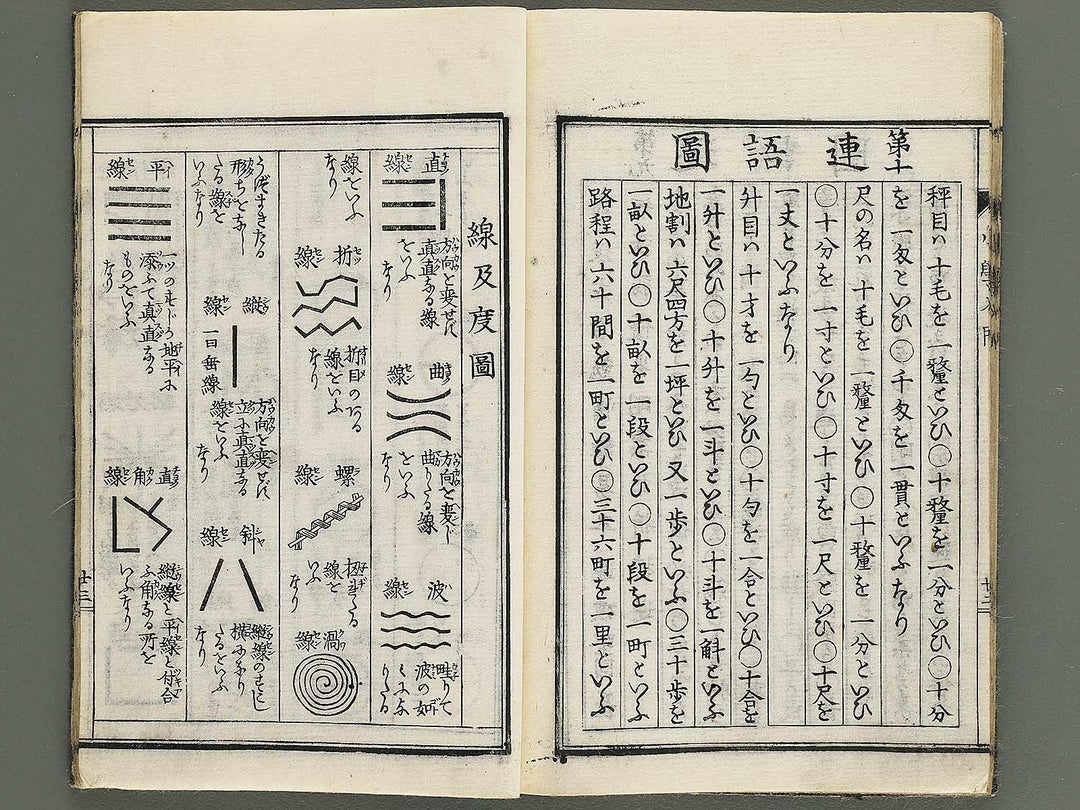 第十
連語圖
秤目ハ十毛を一氂といひ〇十氂を一分といひ〇十分
を一匁といひ〇千匁を一貫といふなり
尺の名ハ十毛を一氂といひ〇十氂を一分といひ
〇十分を一寸といひ〇十寸を一尺といひ〇十尺を
一丈といふなり
升目ハ十才を一勺といひ〇十勺を一合といひ〇十合を
一升といひ〇十升を一斗といひ〇十斗を一斛といふ
地割ハ六尺四方を一坪といひ又一歩といふ〇三十歩を
一畝といひ〇十畝を一段といひ〇十段を一町といふ
路程ハ六十間を一町といひ〇三十六町を一里といふ
廿二
線及度圖
直線
方向を変せに
真直なる線
をいふ
なり
曲線
方向を変し
曲りたる線
をいふ
なり
波線
畦りて
波の如
くにな
りたる
線をいふ
なり
折線
折目のある
線をいふ
なり
螺線
たる
線を
いふ
なり
渦線
うづまきたる
形ちをなし
たる線を
いふなり
縦線
一曰垂線
方向を変せに
立に真直なる
線をいふ
なり
斜線
縦線のすこし
横になり
たるをいふ
なり
平線
一ツのすじの地平に
添ふて真直なる
ものをいふ
なり
直角線
縦線と平線と付合
ふ角なる所を
いふなり
廿三